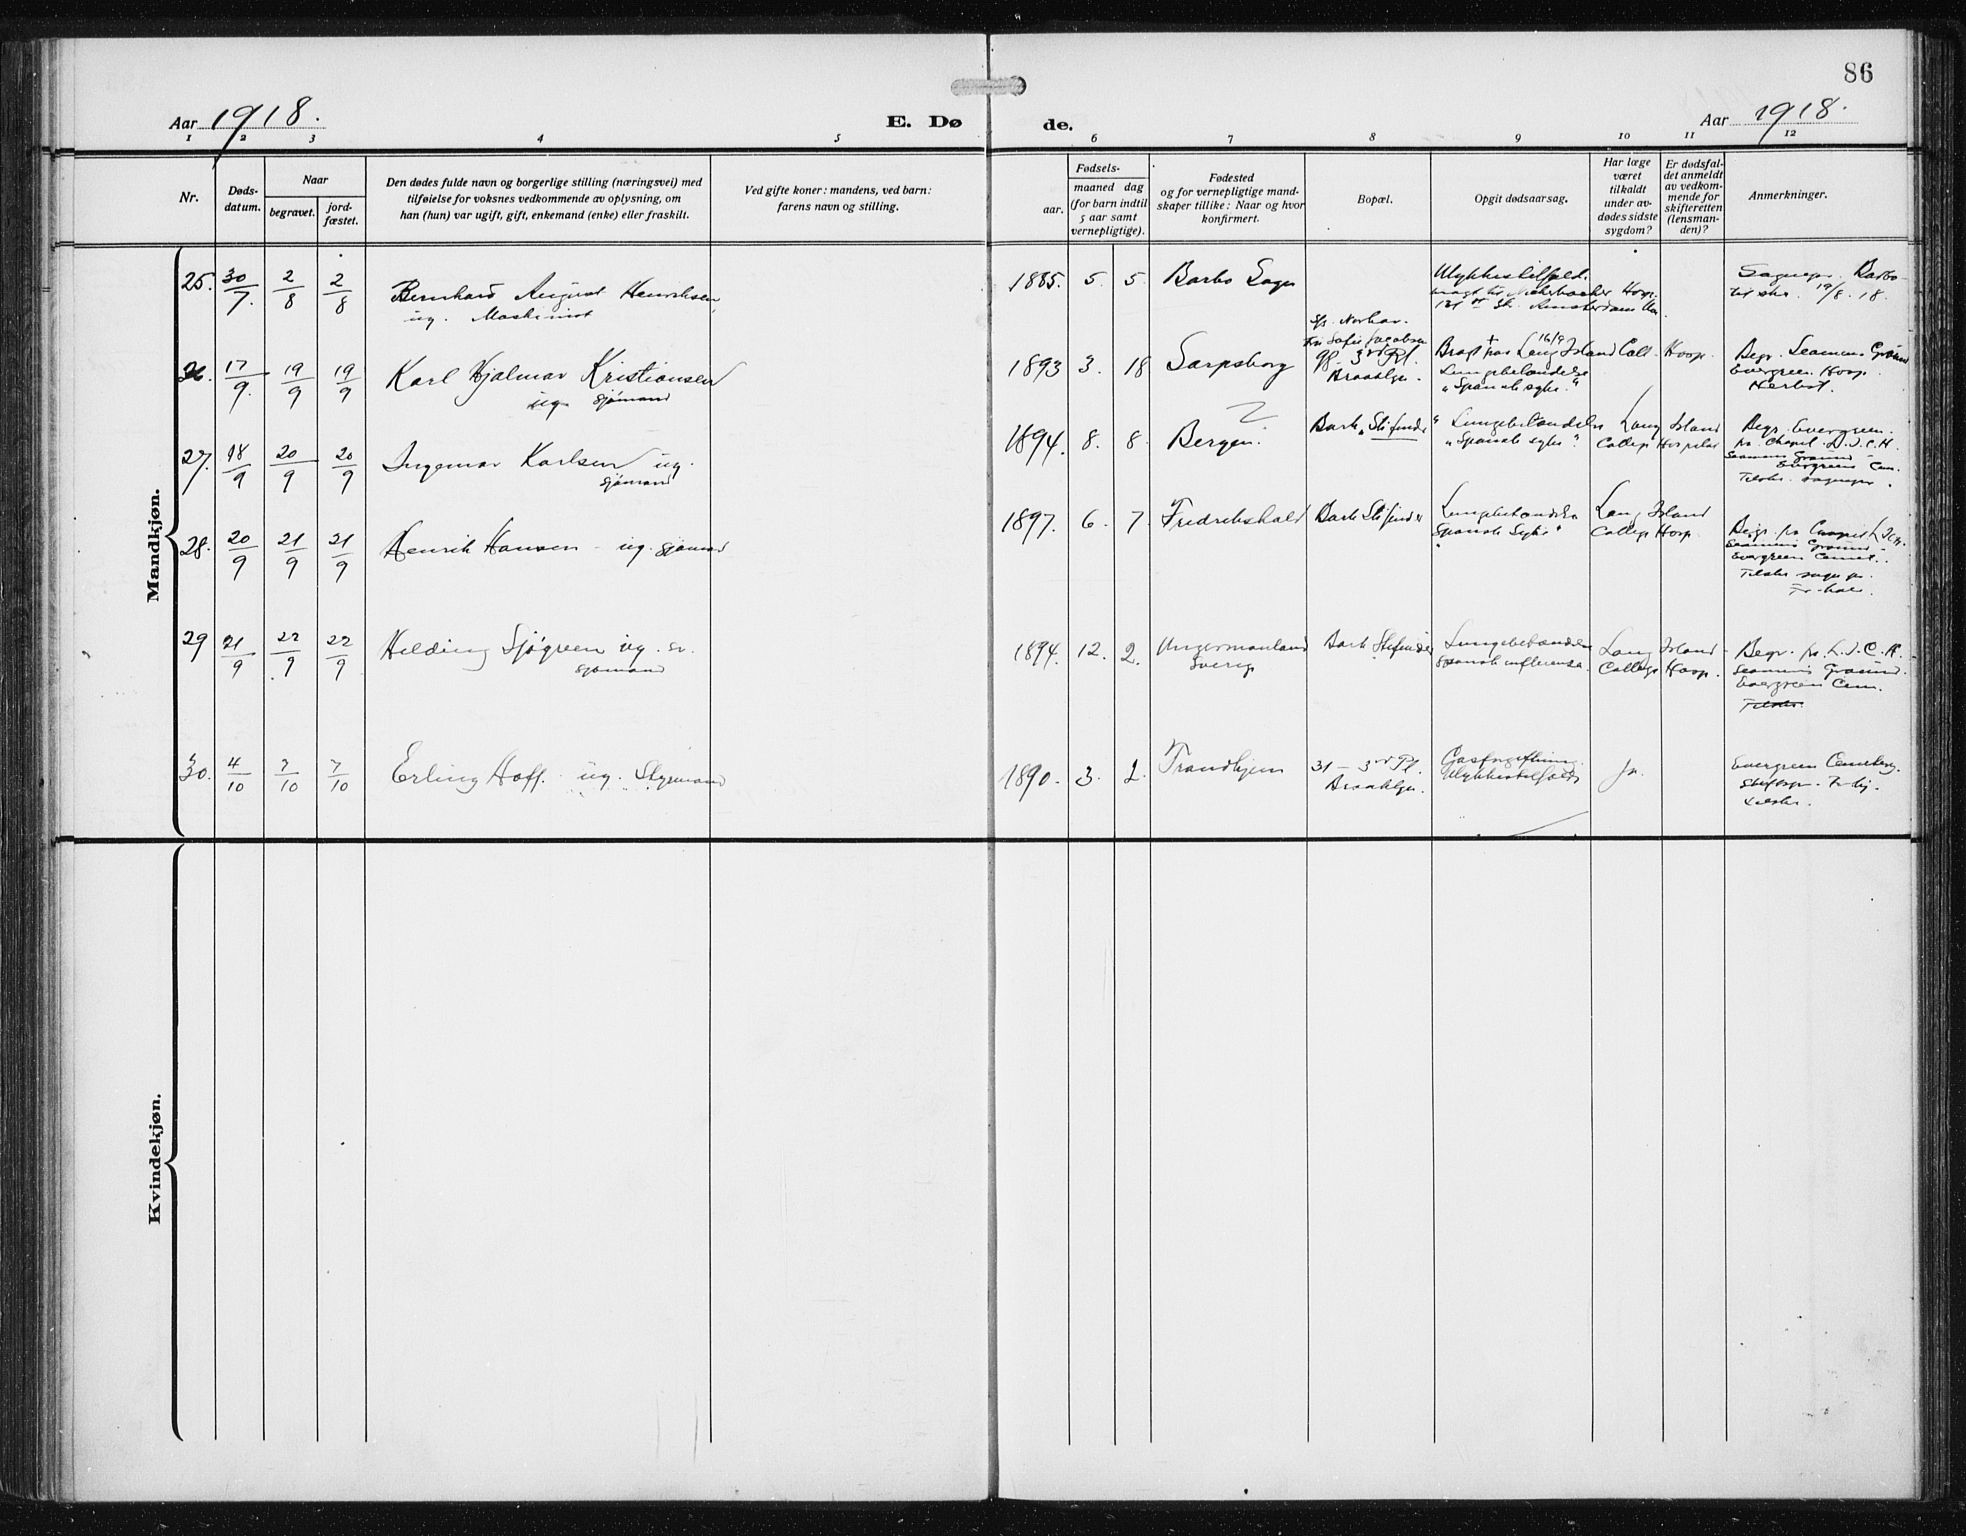 86
Aar 1918.
E. Dø
de.
Aar 1918.
1 2 3 4 5 6 7 8 9 10 11 12
Nr.
Døds-
datum.
Naar
begravet.
jord-
fæstet.
Den dødes fulde navn og borgerlige stilling (næringsvei) med
tilføielse for voksnes vedkommende av oplysning, om
han (hun) var ugift, gift, enkemand (enke) eller fraskilt.
Ved gifte koner: mandens, ved barn:
farens navn og stilling.
Fødsels-
aar.
maaned dag
(for barn indtil
5 aar samt
vernepligtige).
Fødested
og for vernepligtige mand-
skaper tillike: Naar og hvor
konfirmert.
Bopæl.
Opgit dødsaarsag.
Har læge
været
tilkaldt
under av-
dødes sidste
sygdom?
Er dødsfal-
det anmeldt
av vedkom-
mende for
skifteretten
(lensman-
den)?
Anmerkninger.
Mandkjøn.
25. 30/7. 2/8 2/8 Bernhard August Henriksen,
ug. Maskinist
1885. 5. 5. Barbo Sogn
Ulykkestilfeld.
Hosp.
Barbo
19/8. 18.
26. 17/9. 19/9 19/9 Karl Hjalmar Kristiansen
ug. sjømand
1893 3. 18 Sarpsborg
Sofie Jacobsen
98 - 3rd Pl.
Brooklyn.
16/9
Long Island Coll. Hosp.
Lungebetændelse
"Spansk syke."
Begr. Seamens Ground
Evergreen
27. 18/9 20/9 20/9 Ingemar Karlsen ug.
sjømand
1894. 8. 8. Bergen.
Bark "Stifinder"
Lungebetændelse
"Spansk syke"
Long Island
College Hospital
Begr. Evergreen.
fra Chapel L. I. C. H.
Seamens Ground
Evergreens Cem.
28. 20/9 21/9 21/9 Henrik Hansen - ug. sjømand
1897. 6. 7. Fredrikshald
Bark Stifinder
Lungebetændelse
"Spansk Syke"
Long Island
College Hosp.
Seamens Ground
Evergreen Cemet.
29 21/9 22/9 22/9 Hilding Sjøgreen ug. sv.
sjømand
1894. 12. 2. Ångermanland
Sverige
Bark Stifinder
Lungebetændelse
Spansk influensa.
Long Island
College Hosp.
Begr. fra L. I. C. H.
Seamens Ground.
Evergreen Cem.
30. 4/10 7/10 7/10 Erling Hoff. ug. Styrmand
1890. 3. 2. Trondhjem
31 - 3rd Pl.
Brooklyn.
Gasforgiftning.
Ulykkestilfælde
Ja.
Evergreen Cemetery.
Kvindekjøn.